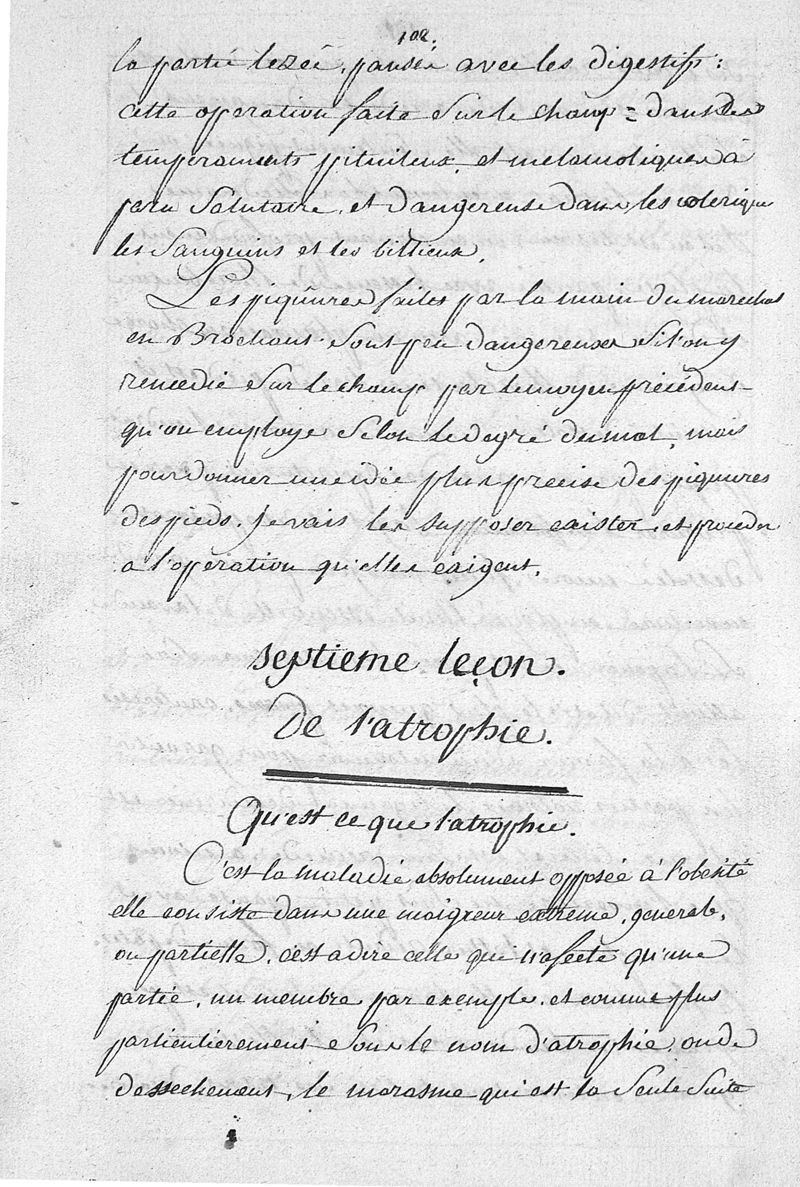 102.
la partie lezée, pansée avec les digestifs:
cette operation faite sur le champ = dans des
temperaments pituiteux, et melancoliques à
paru salutaire, et dangereuse dans les colerique
les sanguins et les billieux.
Les piqûures faites par la main du marechal
en Brochant sont peu dangereuses si l'on y
remedie sur le champ par le moyen précédent
qu'on employe selon le degré du mal, mais
pour donner une idée plus precise des piquures
des pieds. Je vais les supposer exister, et proceder
a l'operation qu'elles exigent.
septieme leçon.
De l'atrophie.
Qu'est ce que l'atrophie.
C'est la maladie absolument opposée à l'obesité
elle consiste dans une maigreur extreme, generale,
ou partielle, c'est a dire celle qui n'afecte qu'une
partie, un membre par exemple, et connue plus
particulierement sous le nom d'atrophie, ou de
dessechement, le marasme qui est la seule suite